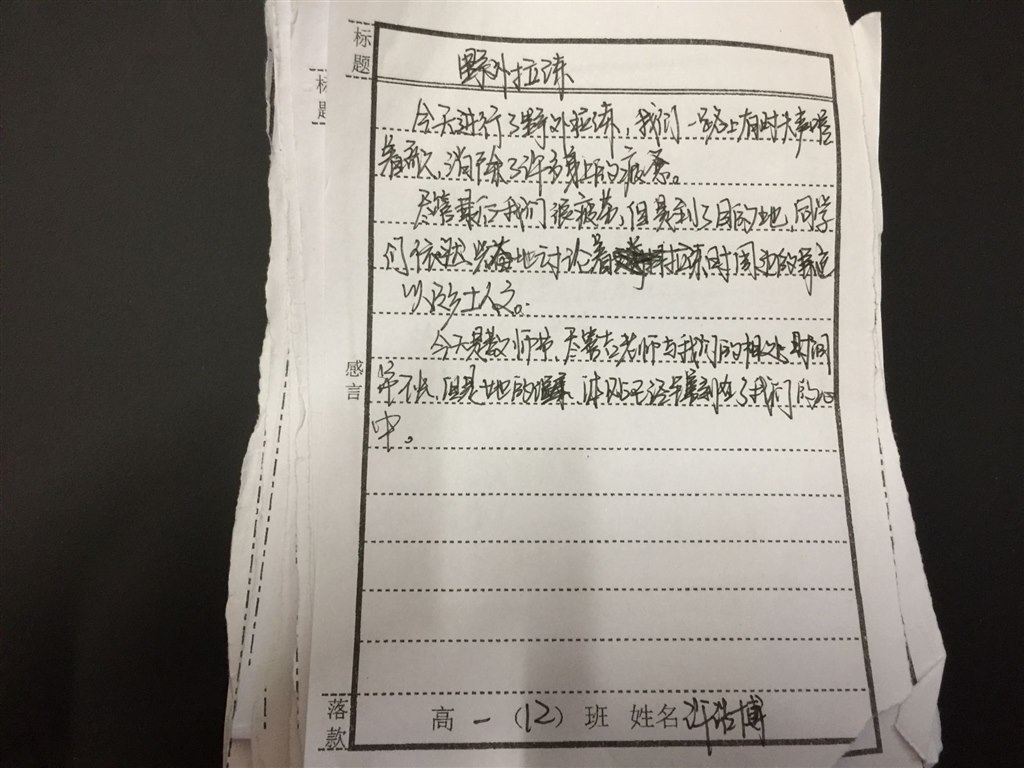 标题
标题
野外拉练
今天进行了野外拉练,我们一路上有时大声唱
着歌,消除了许多身上的疲惫。
尽管最后我们很疲劳,但是到了目的地,同学
们依然兴奋地讨论着拉练时周边的
以及乡土人文。
今天是教师节,尽管老师与我们的相处时间
并不长,但是他的温柔、体贴已经刻在了我们的心
中。
感言
落款
高一(12)班 姓名 许浩博